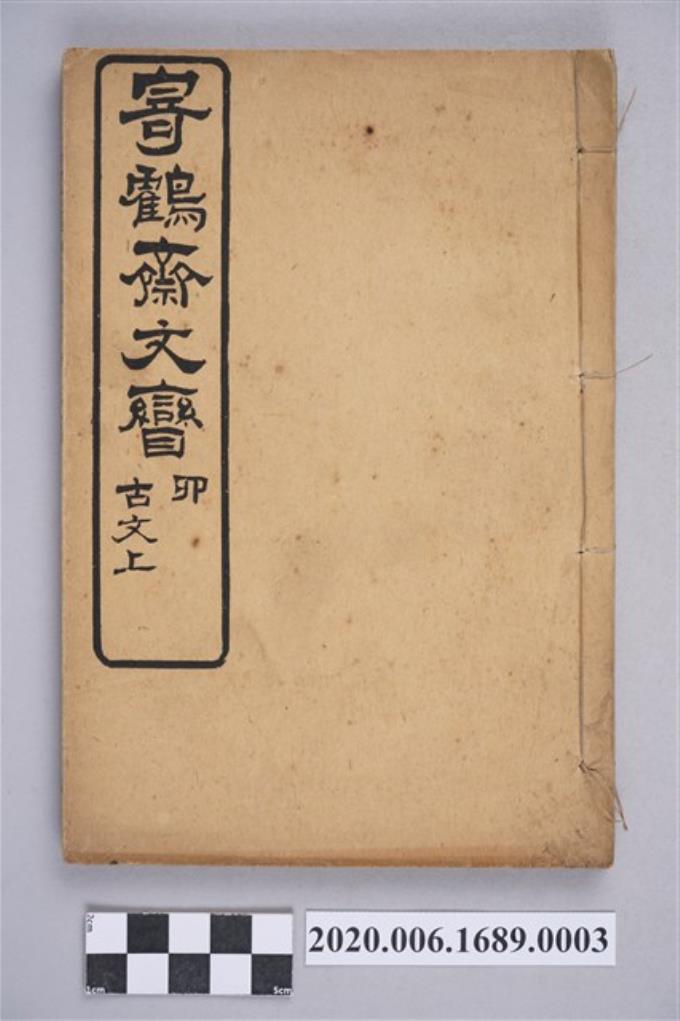 寄鶴齋文臠
卯
古文上
2020.006.1689.0003
2cm
1cm
5cm